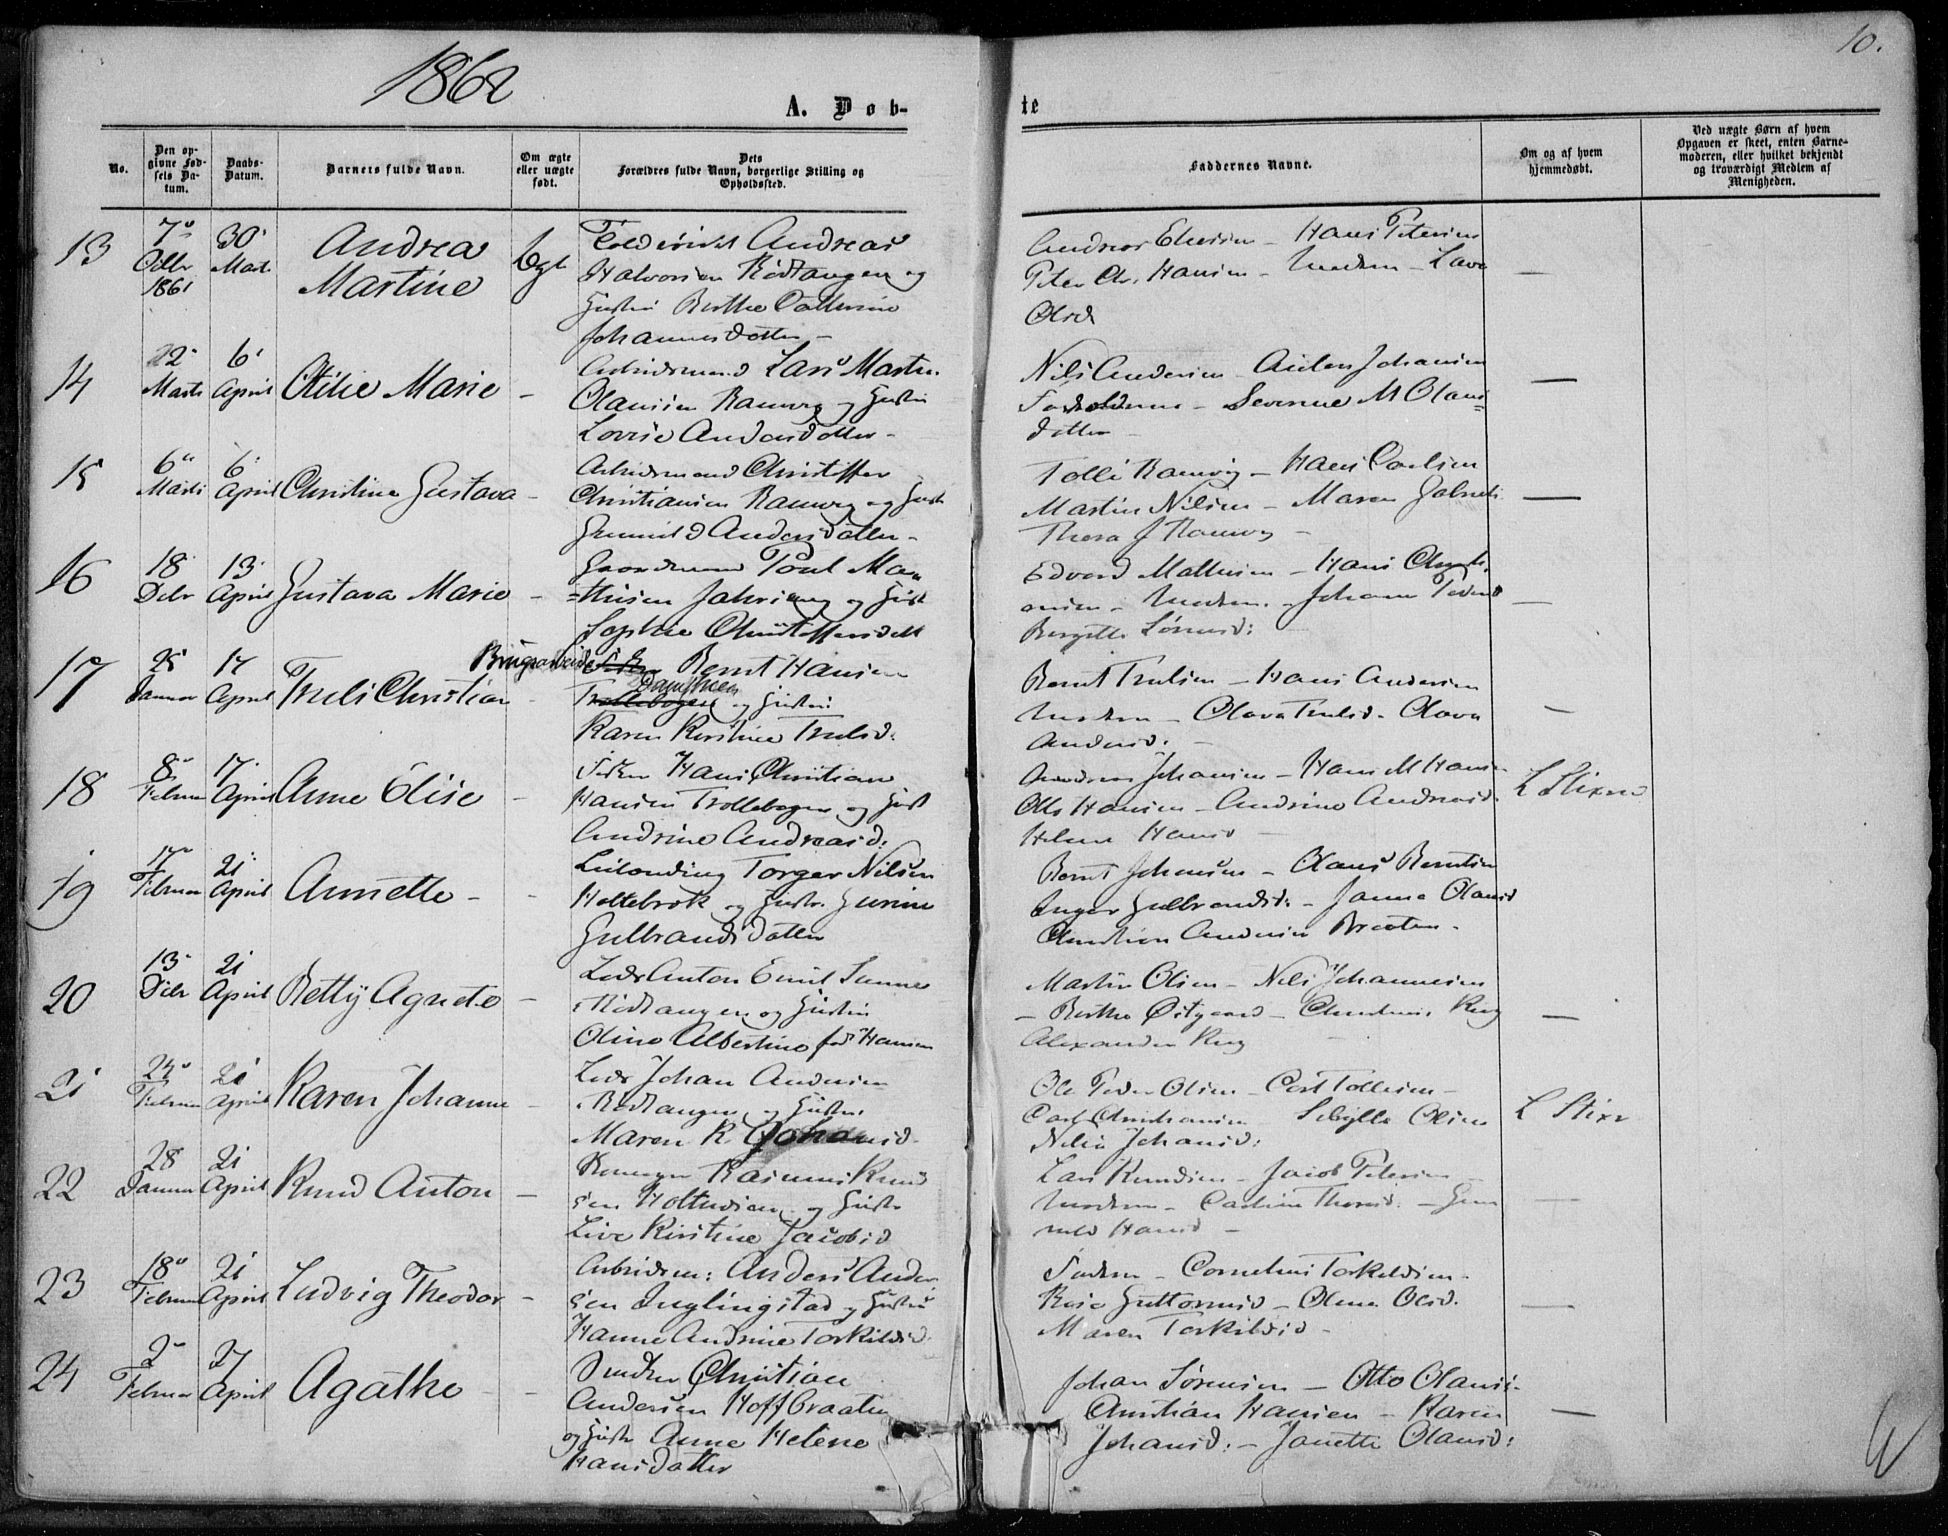 1862
10.
A. Døb-
te
No.
Den op-
givne Fød-
sels Da-
tum.
Daabs-
Datum.
Barnets fulde Navn.
Om ægte
eller uægte
født.
Dets
Forældres fulde Navn, borgerlige Stilling og
Opholdssted.
Faddernes Navne.
Om og af hvem
hjemmedøbt.
Ved uægte Børn af hvem
Opgaven er skeet, enten Barne-
moderen, eller hvilket bekjendt
og troværdigt Medlem af
Menigheden.
13
7de
Octbr
1861
30
Marts
Andrea
Martine
Ægt
Andreas
Halvorsen Rødtangen og
Hustru Berthe Cathrine
Johannesdatter -
Andreas - Hans Petersen
Peter Chr. Hansen - Modren - Lava
Olsd
—
14
22
Marts
6
April
Otilie Marie
-
Arbeidsmand Lars Martin
Olaussen Ramvig og Hustru
Lovise Andersdatter -
Nils Andersen - Johansen
Faderen - Severine M Olaus=
datter
—
15
6
Marts
6
April
Christine Gustava
-
Arbeidsmand Christoffer
Christiansen Ramvig og Hustr
Gunnild Andersdatter -
Tolli Ramvig - Hans Carlsen
Martin Nilsen - Maren
Thora J Ramvig -
—
16
18
Debr
13
April
Gustava Marie
-
Gaardmand Poul Ma=
=thisen Jahrseng og Hust
Sophie Christoffersdatt
Edvard Mathisen - Hans Christi
ansen - Modren - Johanne Pedersd
Bergitte Sørensd:
—
17
25
Januar
17
April
Truls Christian
-
Brugsarbeider Bernt Hansen
Trollebogen og Hustru
Karen Kirstine Trulsd.
Bernt Trulsen - Hans Andersen
Modren - Olava Trulsd. Olava
Andersd. -
—
18
8
Februar
17
April
Anne Elise
-
Fisker Hans Christian
Hansen Trollebogen og Hust
Andrine Andreasd.
Andreas Johansen - Hans M Hansen
Otto Hansen - Andrine Andreasd.
Helene Hansd -
L Stixrud
19
17
Februar
21
April
Annette -
-
Leilending Torger Nilsen
Holtebrok og Hustr. Gurine
Gulbrandsdatter
Bernt Johansen - Olaus Berntsen
Inger Gulbrandsd. - Janna Olausd
Christian Andersen Braaten -
20
13
Debr
21
April
Betty Agnete
-
Lods Anton Emil Sanne
Rødtangen og Hustru
Oline Albertine født Hansen
Martin Olsen - Nils Johannesen
- Berthe Østgaard - Ring
Alexander Ring
—
21
24
Februar
21
April
Karen Johanne
-
Lods Johan Andersen
Rødtangen og Hustru
Maren K Johansd.
Ole Peder Olsen - Tollefsen -
Carl Christiansen Sibylle Olsen
Johansd:
L Stixr
22
28
Januar
21
April
Knud Anton
-
Rasmus Knud
sen og Hustr
Live Kirstine Jacobsd
Lars Knudsen - Jacob Petersen
Modren - Thorsd. - Gun
nild Hansd -
—
23
18
Februar
21
April
Ludvig Theodor
-
Arbeidsm: Anders Ander
sen Inglingstad og Hustru
Hanne Andrine Torkildsd.
Fadren - Cornelius Torkildsen -
Guttormsd - Olsd.
Maren Torkildsd -
—
24
2
Februar
27
April
Agathe -
-
Snedker Christian
Andersen Hoffbraaten
og Hustr Anne Helene
Hansdatter
Johan Sørensen - Otto Olaus.
Christian Hansen - Karen
Johansd. - Janette Olausd:
—